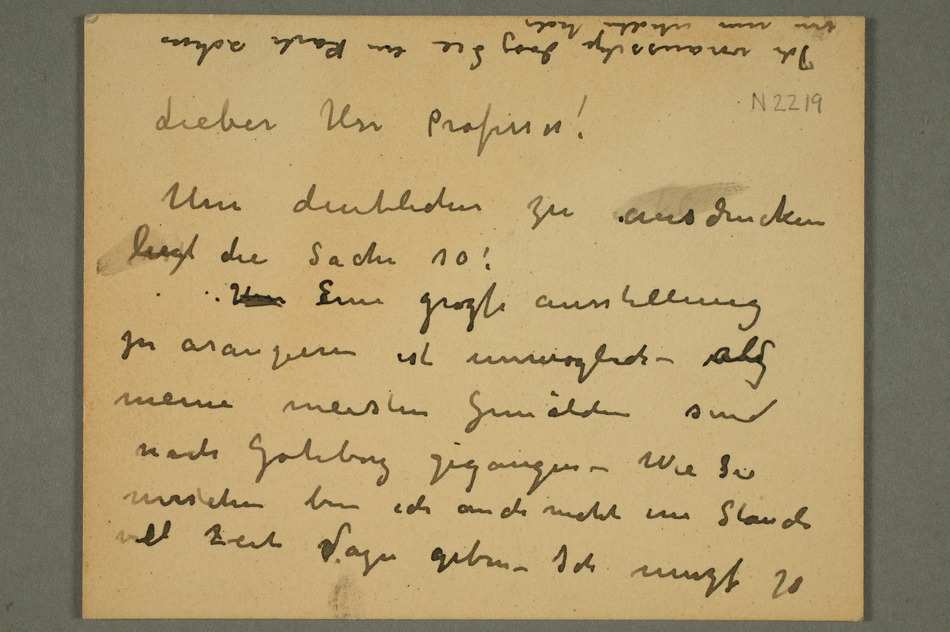 Ich voraussetze dasz Sie ein Karte schon
von mir erhalten habe
N 2219
Lieber Herr Professor!
Um deutlicher zu ausdrucken
liegt die Sache so!
Eine grozse ausstellung
zu arangieren ist unmoglich – als
meine meisten Gemälden sind
nach Goteborg gegangen – Wie Sie
verstehen bin ich auch nicht im Stande
viel Zeit geben – Ich muszt ja